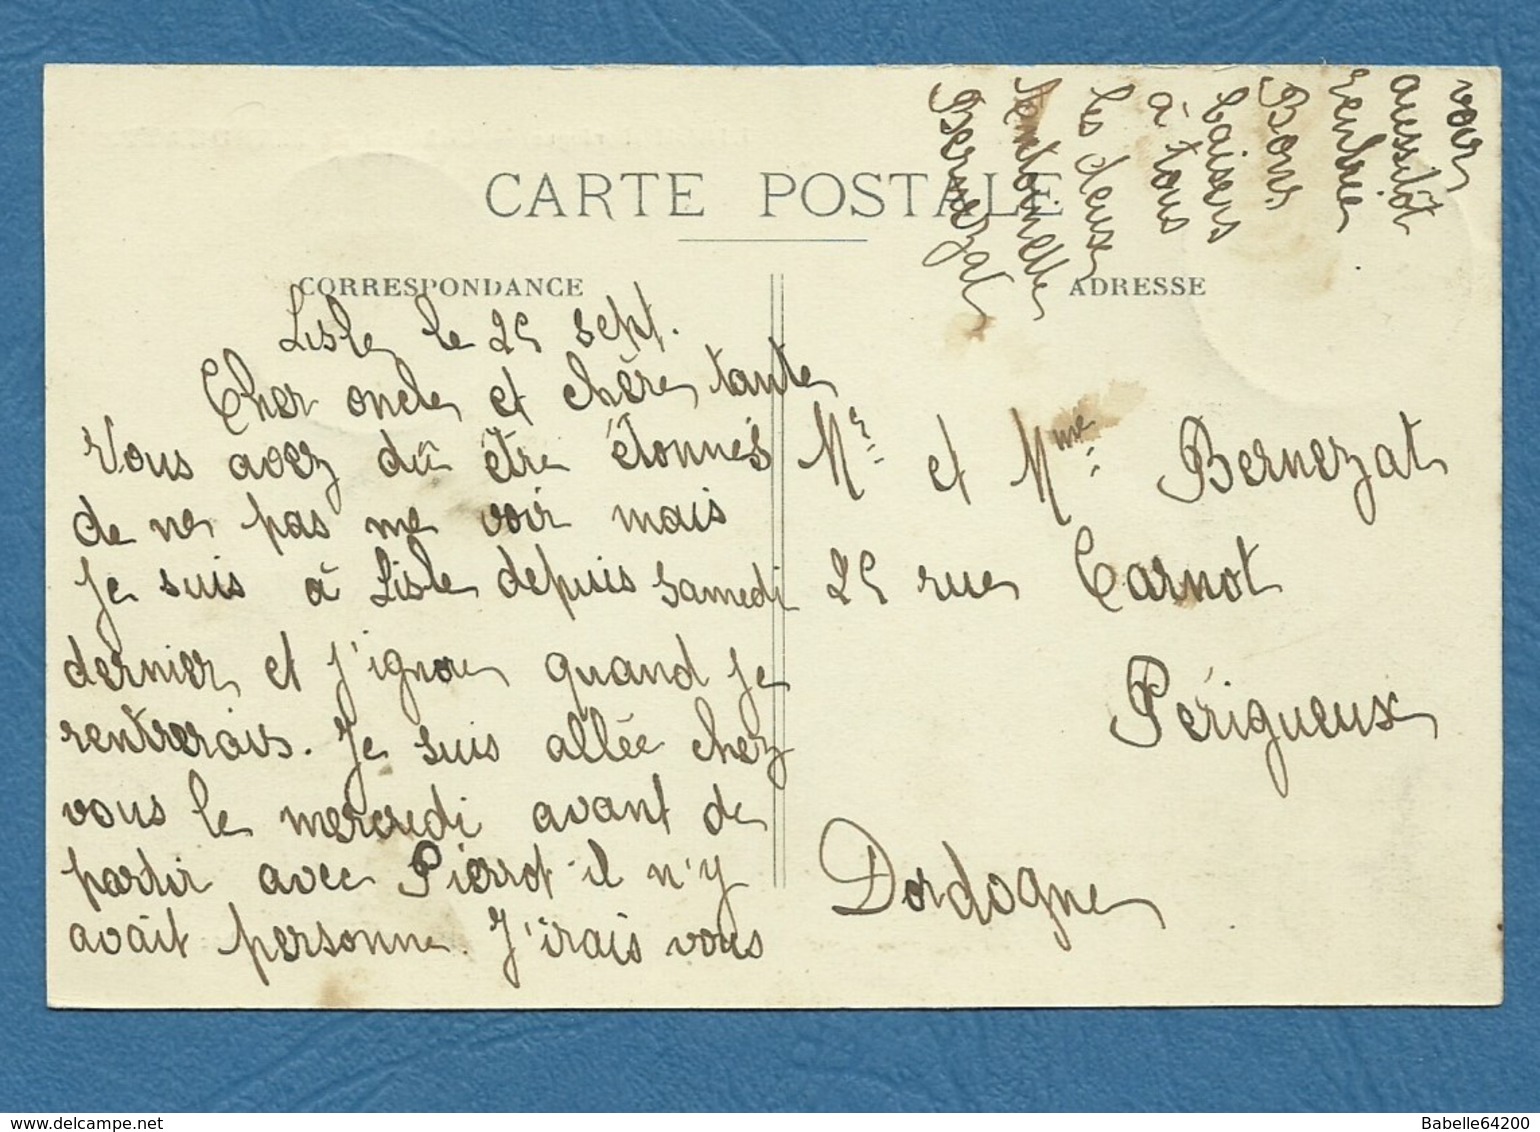 CARTE POSTALE
CORRESPONDANCE
Lisle le 25 sept.
Cher oncle et chère tante
Vous avez dû être étonnés
de ne pas me voir mais
je suis à Lisle depuis samedi
dernier et j'ignore quand je
rentrerais. Je suis allée chez
vous le mercredi avant de
partir avec Pierrot il n'y
avait personne. J'irais vous
voir
aussitôt
rentrée
Bons
baisers
à tous
les deux
Bernezat
ADRESSE
Mr. et Mme. Bernezat
25 rue Carnot
Périgueux
Dordogne
www.delcampe.net
Babelle64200